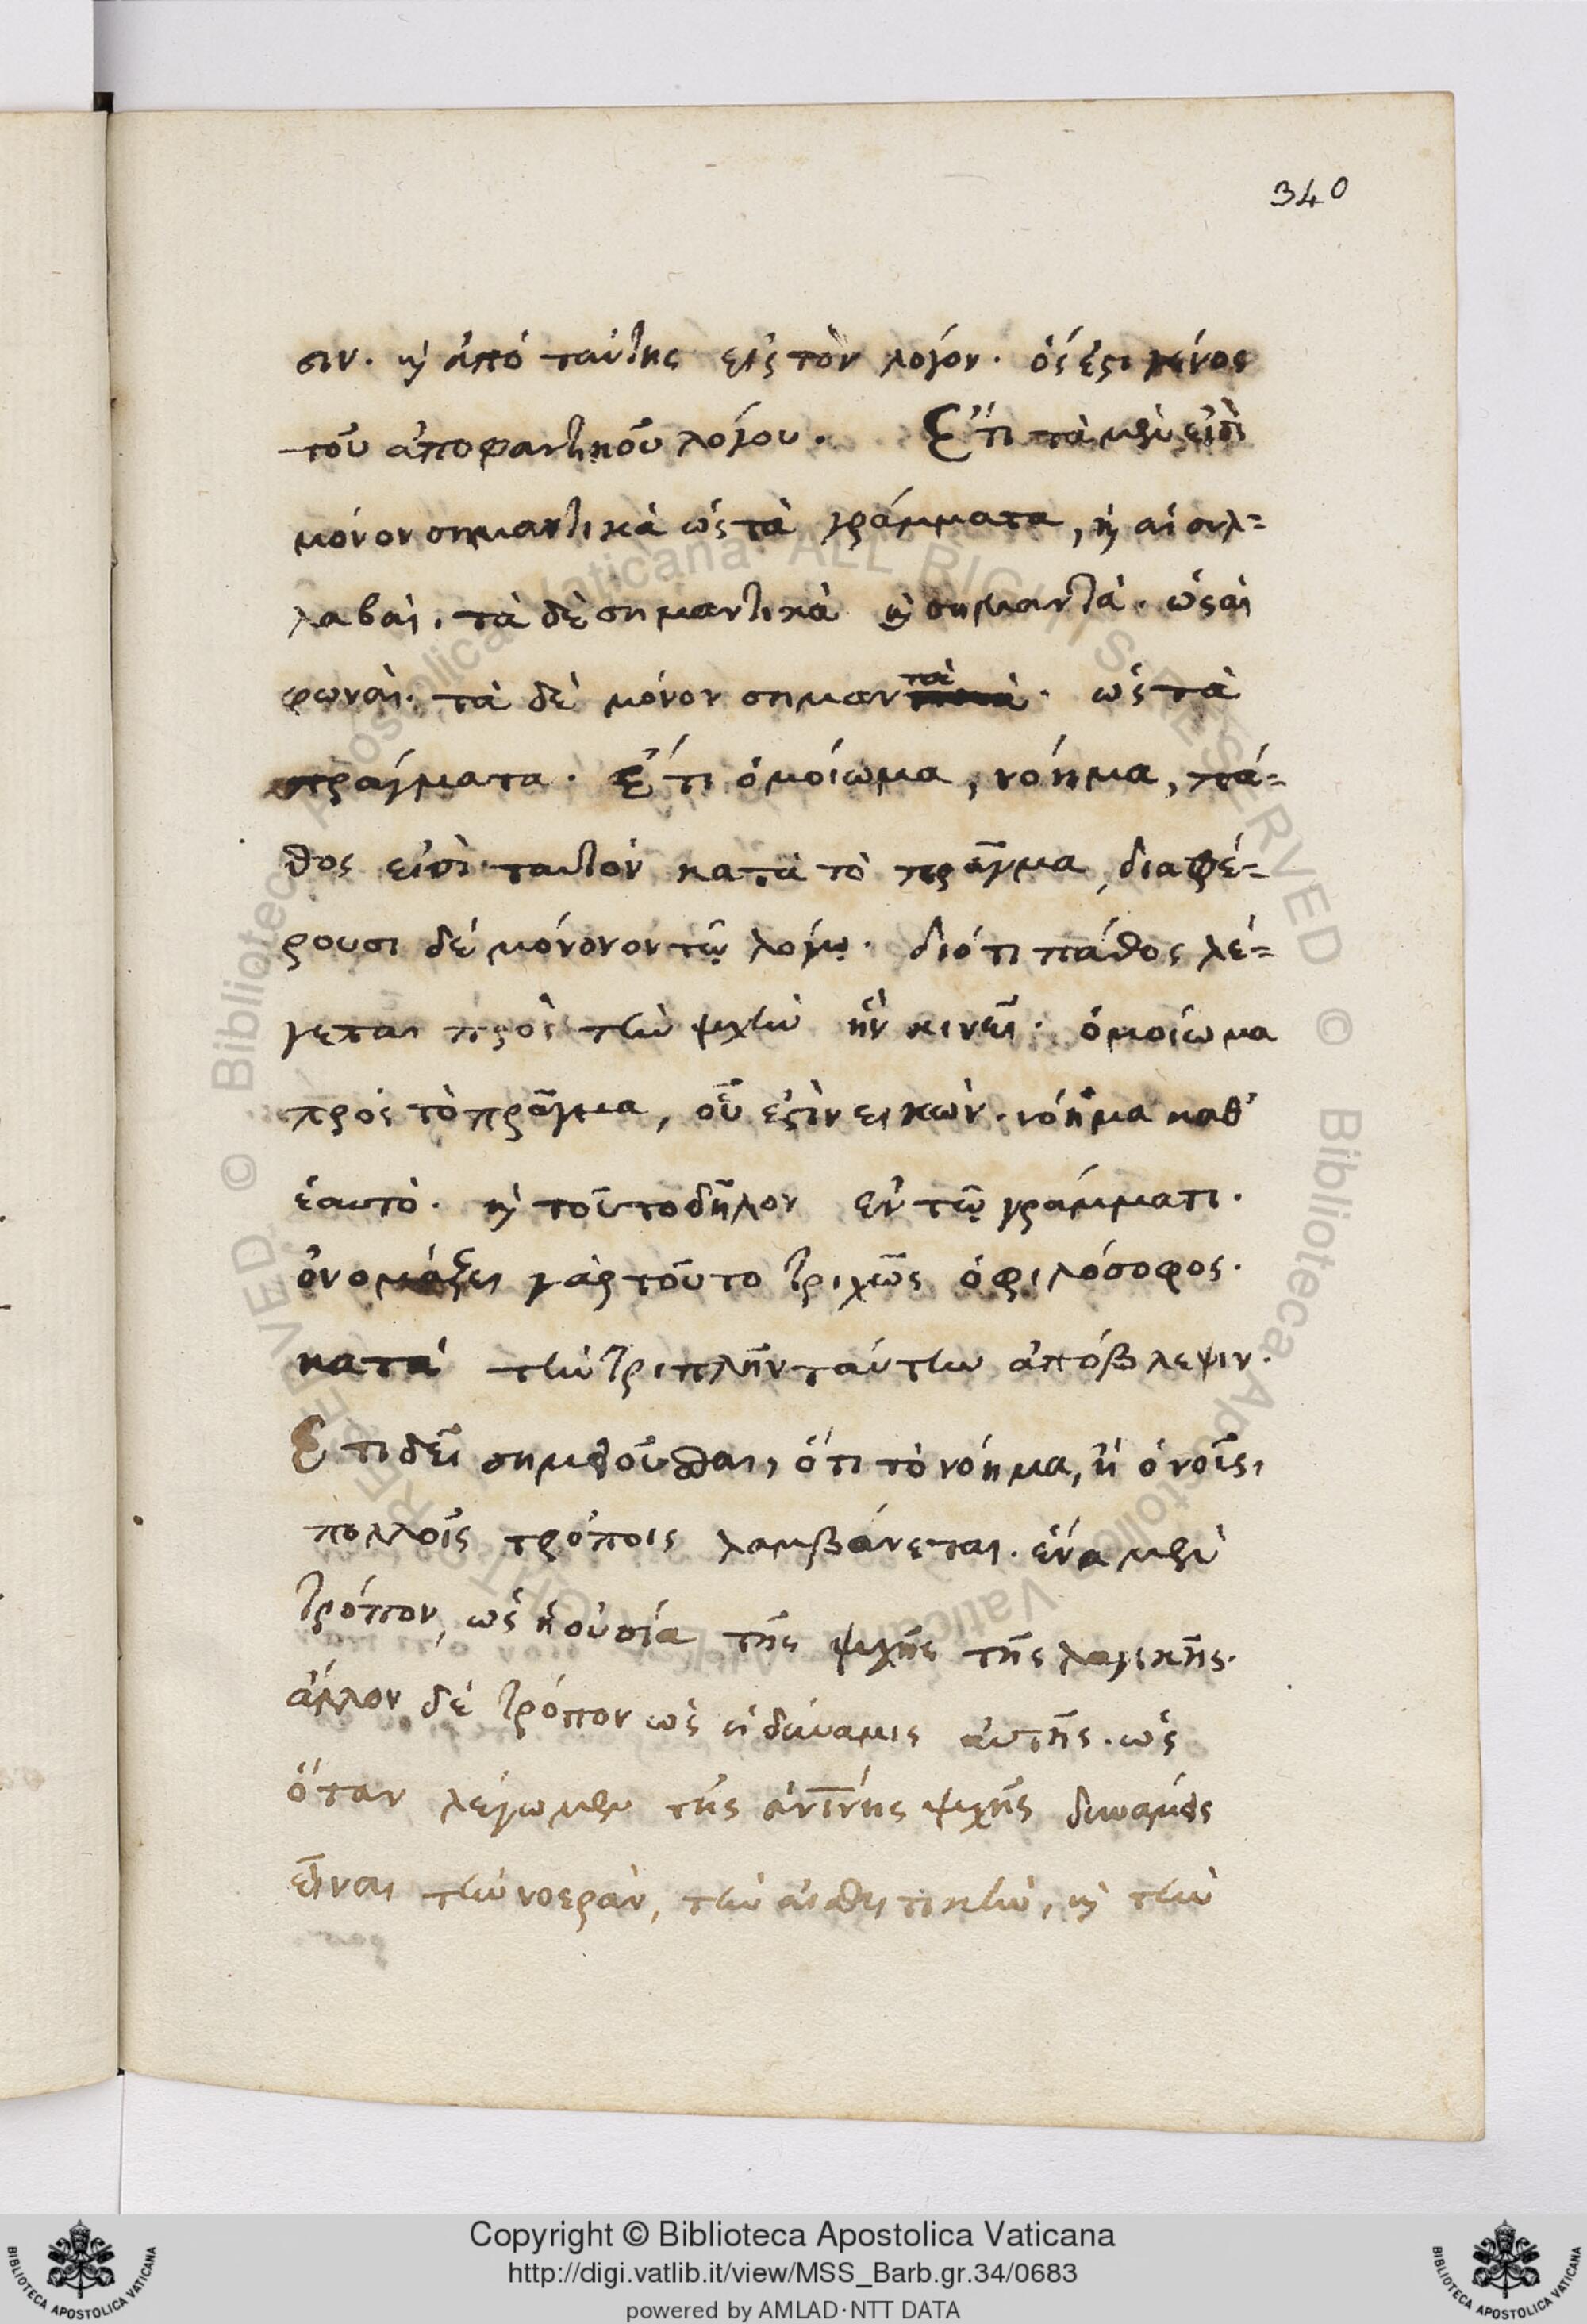 340
σιν. κὶ ἀπό ταύτης εἰς τὸν λόγον. ὅς ἐστι γένος
τοῦ ἀποφαντικοῦ λόγου. Ἔτι τὰ μὲν εἰσὶ
μόνον σημαντικὰ ὡς τὰ γράμματα, κὶ αἱ συλ=
λαβαὶ. τὰ δὲ σημαντικὰ κὶ σημαντὰ. ὡς αἱ
φωναὶ. τὰ δὲ μόνον σημαντὰ. ὡς τὰ
πράγματα. Ἔτι ὁμοίωμα, νόημα, πά=
θος εἰσὶ ταυτὸν κατὰ τὸ πρᾶγμα, διαφέ=
ρουσι δέ μόνονον τῷ λόγῳ. διότι πάθος λέ=
γεται πρὸς τὴν ψυχὴν ἣν κινεῖ. ὁμοίωμα
πρὸς τὸ πρᾶγμα, οὗ ἐστὶν εἰκών. νόημα καθ'
ἑαυτὸ. κὶ τοῦτο δῆλον ἐν τῷ γράμματι.
ὀνομάζει γὰρ τοῦτο τριχῶς ὁ φιλόσοφος.
κατά τὴν τριπλῆν ταύτην ἀπόβλεψιν.
Ἔτι δεῖ σημειοῦσθαι, ὅτι τὸ νόημα, ἢ ὁ νοῦς,
πολλοῖς τρόποις λαμβάνεται. ἕνα μὲν
τρόπον, ὡς ἡ οὐσία τῆς ψυχῆς τῆς λογικῆς.
ἄλλον δέ τρόπον ὡς ἡ δύναμις αὐτῆς. ὡς
ὅταν λέγωμεν τῆς ἀνίνης ψυχῆς δυνάμεις
εἶναι τὴν νοερὰν, τὴν αἰσθητικὴν, κὶ τὴν
Copyright © Biblioteca Apostolica Vaticana
http://digi.vatlib.it/view/MSS_Barb.gr.34/0683
powered by AMLAD·NTT DATA